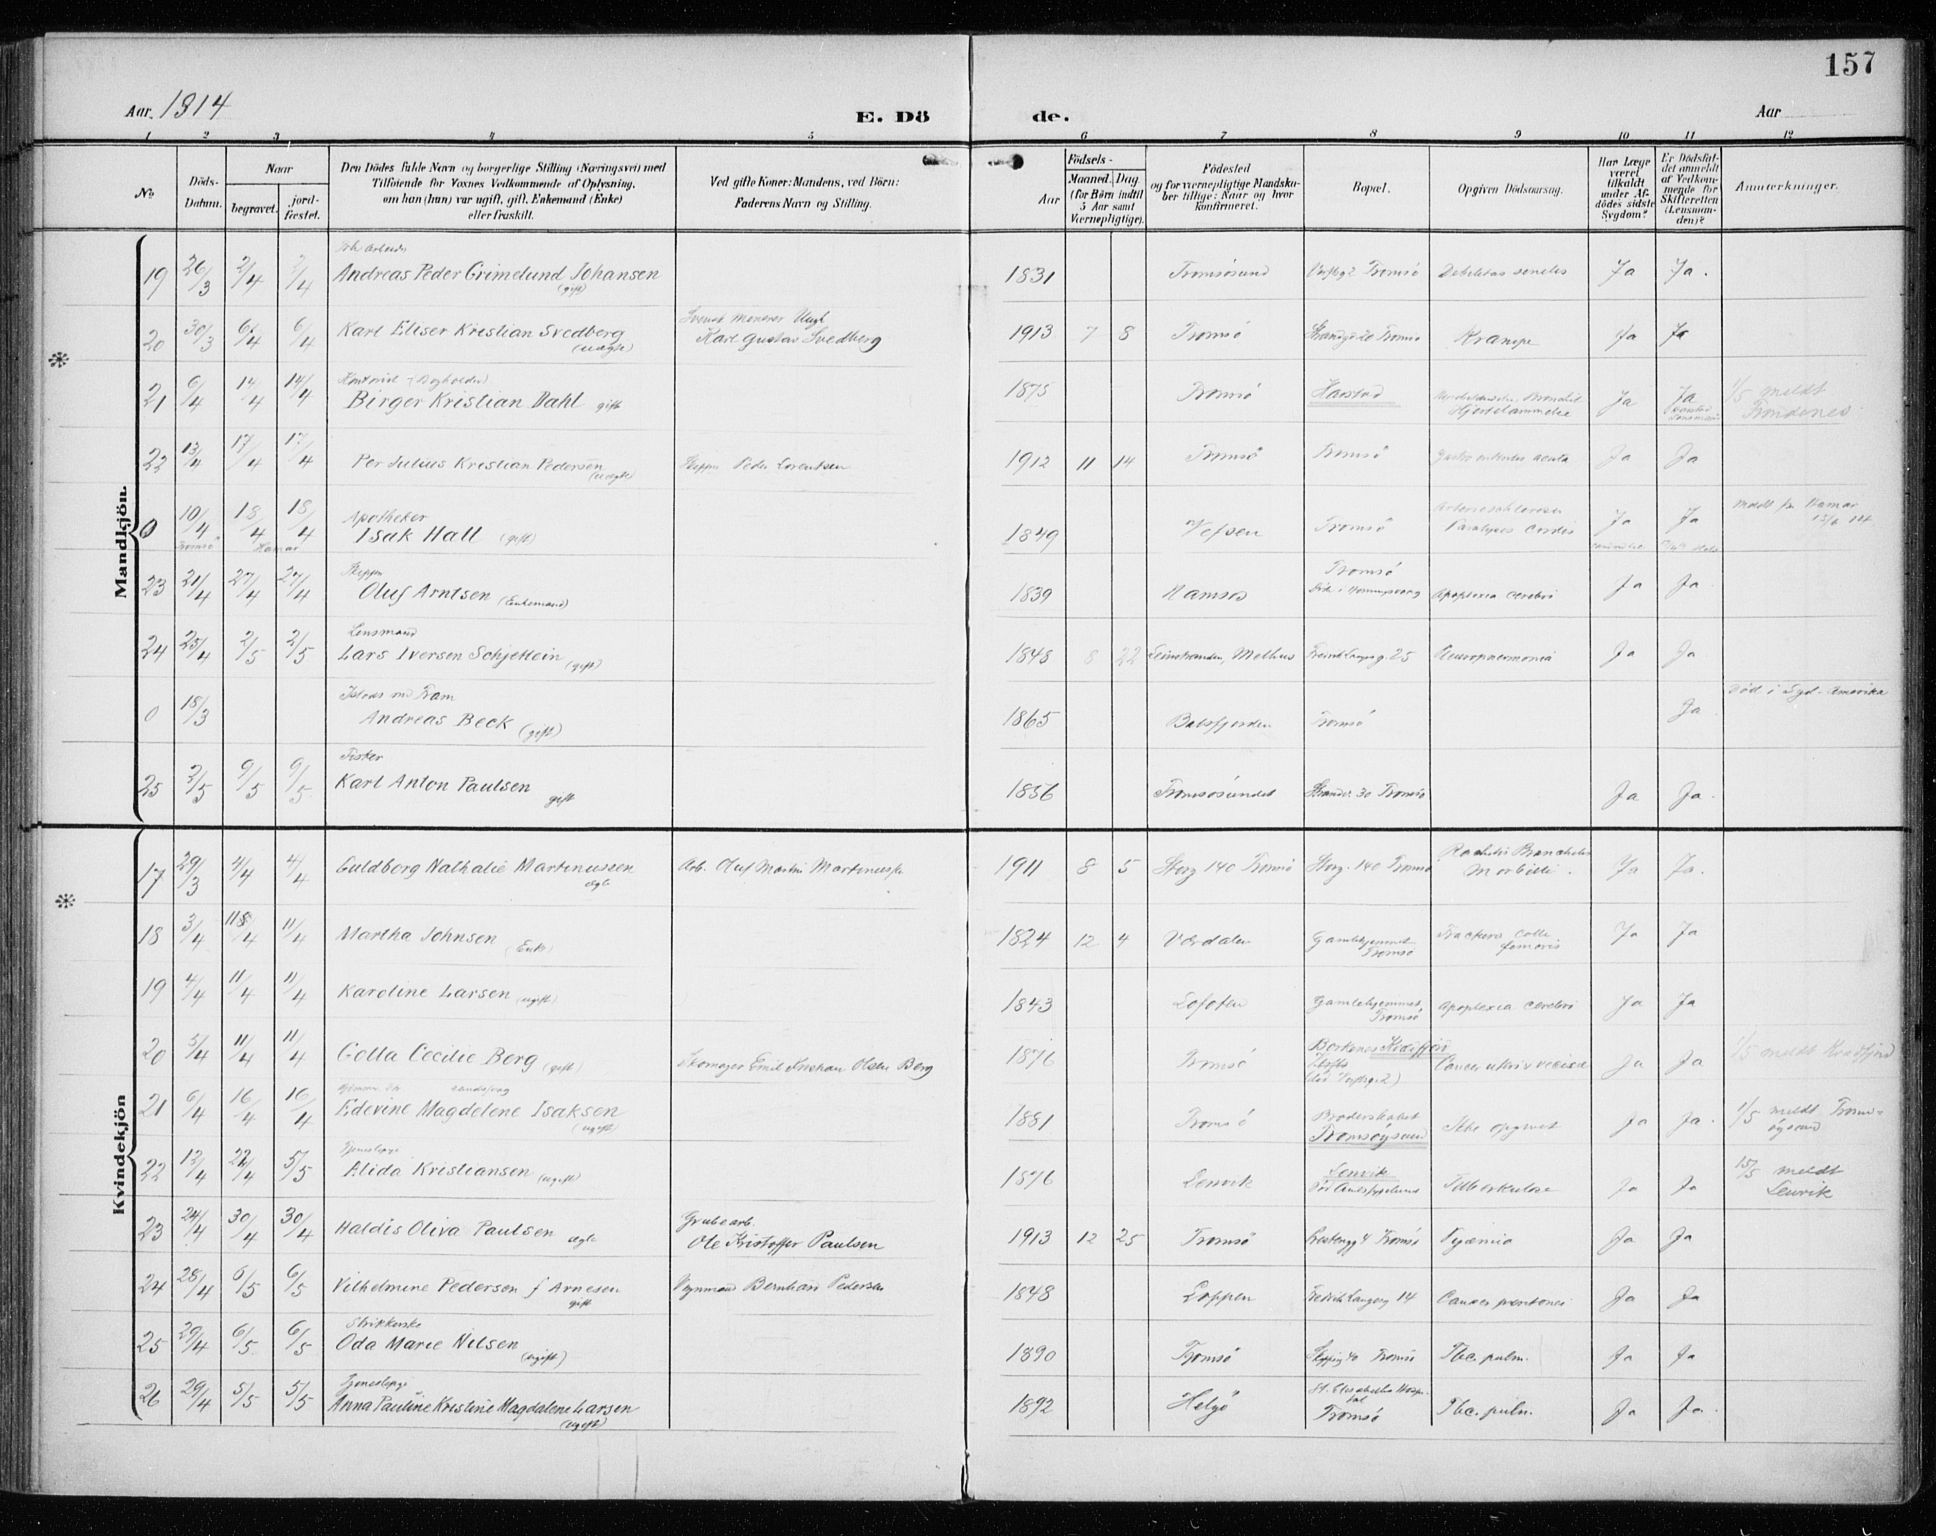 157
Aar. 1914 E. Dö de. Aar
1 2 3 4 5 6 7 8 9 10 11 12
No. Döds-Datum. Naar begravet. jordfæstet. Den Dödes fulde Navn og borgerlige Stilling (Næringsvei) med Tilföiende for Voxnes Vedkommende af Oplysning, om han (hun) var ugift, gift, Enkemand (Enke) eller fraskilt. Ved gifte Koner: Mandens, ved Börn: Faderens Navn og Stilling. Aar Födsels- Maaned. Dag. (for Börn indtil 5 Aar samt Værnepligtige). Födested og for værnepligtige Mandskaber tillige: Naar og hvor konfirmeret. Bopæl. Opgiven Dödsaarsag. Har Læge været tilkaldt under Afdödes sidste Sygdom? Er Dödsfaldet anmeldt af Vedkommende for Skifteretten (Lensmanden)? Anmærkninger.
Mandkjön.
19 26/3 2/4 2/4 Andreas Peder Grimelund Johansen (gift) 1831 Tromsösund Tromsö Debilitas senilis Ja Ja.
20 30/3 6/4 6/4 Karl Eliser Kristian Svedberg (uægte) Svensk Karl Gustav Svedberg 1913 7 8 Tromsö Strandg. 20 Tromsö Krampe Ja Ja
21 6/4 14/4 14/4 Kontorist (Bogholder) Birger Kristian Dahl gift 1875 Tromsö Harstad Hjertelammelse Ja Ja 1/5 meldt Trondenes
22 13/4 17/4 17/4 Per Julius Kristian Pedersen (uægte) Skipper Peder Lorentsen 1912 11 14 Tromsö Tromsö Gastro enteritis acuta Ja Ja
0 10/4 Tromsö 18/4 18/4 Hamar Apotheker Isak Hall (gift) 1849 Vefsen Tromsö Paralysis cordis Ja Ja Meldt fra Hamar
23 21/4 27/4 27/4 Skipper Oluf Arntsen (Enkemand) 1839 Namsos Tromsö Död i Honningsvaag Apoplexia cerebri Ja Ja
24 25/4 2/5 2/5 Lensmand Lars Iversen Schjetlein (gift) 1848 8 22 Leinstranden, Melhus Fredrik Langes g. 25 Pleuropneumonia Ja Ja
0 18/3 Islods m Fram Andreas Beck (gift) 1865 Balsfjorden Tromsö Ja Död i Syd-Amerika
25 2/5 9/5 9/5 Fisker Karl Anton Paulsen gift 1856 Tromsösundet Strandv. 30 Tromsö Ja Ja.
Kvindekjön
17 29/3 4/4 4/4 Guldborg Nathalie Martinussen ægte Arb. Oluf Martin Martinussen 1911 8 5 Storg 140 Tromsö Storg. 140 Tromsö Morbilli. Ja Ja.
18 3/4 11/4 11/4 Martha Johnsen (Enke) 1824 12 4 Værdalen Gamlehjemmet Tromsö Fractura colli femoris Ja Ja
19 4/4 11/4 11/4 Karoline Larsen (ugift) 1843 Lofoten Gamlehjemmet, Tromsö Apoplexia cerebri Ja Ja
20 5/4 11/4 11/4 Golla Cecilie Berg (gift) Skomager Emil Kristian Olsen Berg 1876 Tromsö Borkenes Kvæfjord Cancer uteri Ja Ja 1/5 meldt Kvæfjord
21 6/4 16/4 16/4 Edevine Magdelene Isaksen (ugift) 1881 Tromsö Broderskabet Tromsöysund Ja Ja. 1/5 meldt Tromsöysund
22 13/4 22/4 5/5 Tjenestepige Alida Kristiansen (ugift) 1876 Lenvik Lenvik Tuberkulose Ja Ja 15/5 meldt Lenvik
23 24/4 30/4 30/4 Haldis Oliva Paulsen ægte Grubearb. Ole Kristoffer Paulsen 1913 12 25 Tromsö Prestengg 4 Tromsö Pyæmia Ja Ja
24 28/4 6/5 6/5 Vilhelmine Pedersen f Arnesen gift Bernhard Pedersen 1848 Loppen Fredrik Langesg 14 Cancer peritonei Ja Ja
25 29/4 6/5 6/5 Strikkerske Oda Marie Nilsen (ugift) 1890 Tromsö Tromsö Tbc. pulm. Ja Ja
26 29/4 5/5 5/5 Tjenestepige Anna Pauline Kristine Magdalene Larsen (ugift) 1892 Helgö St. Elisabeths Hospital Tromsö Tbc. pulm. Ja Ja.